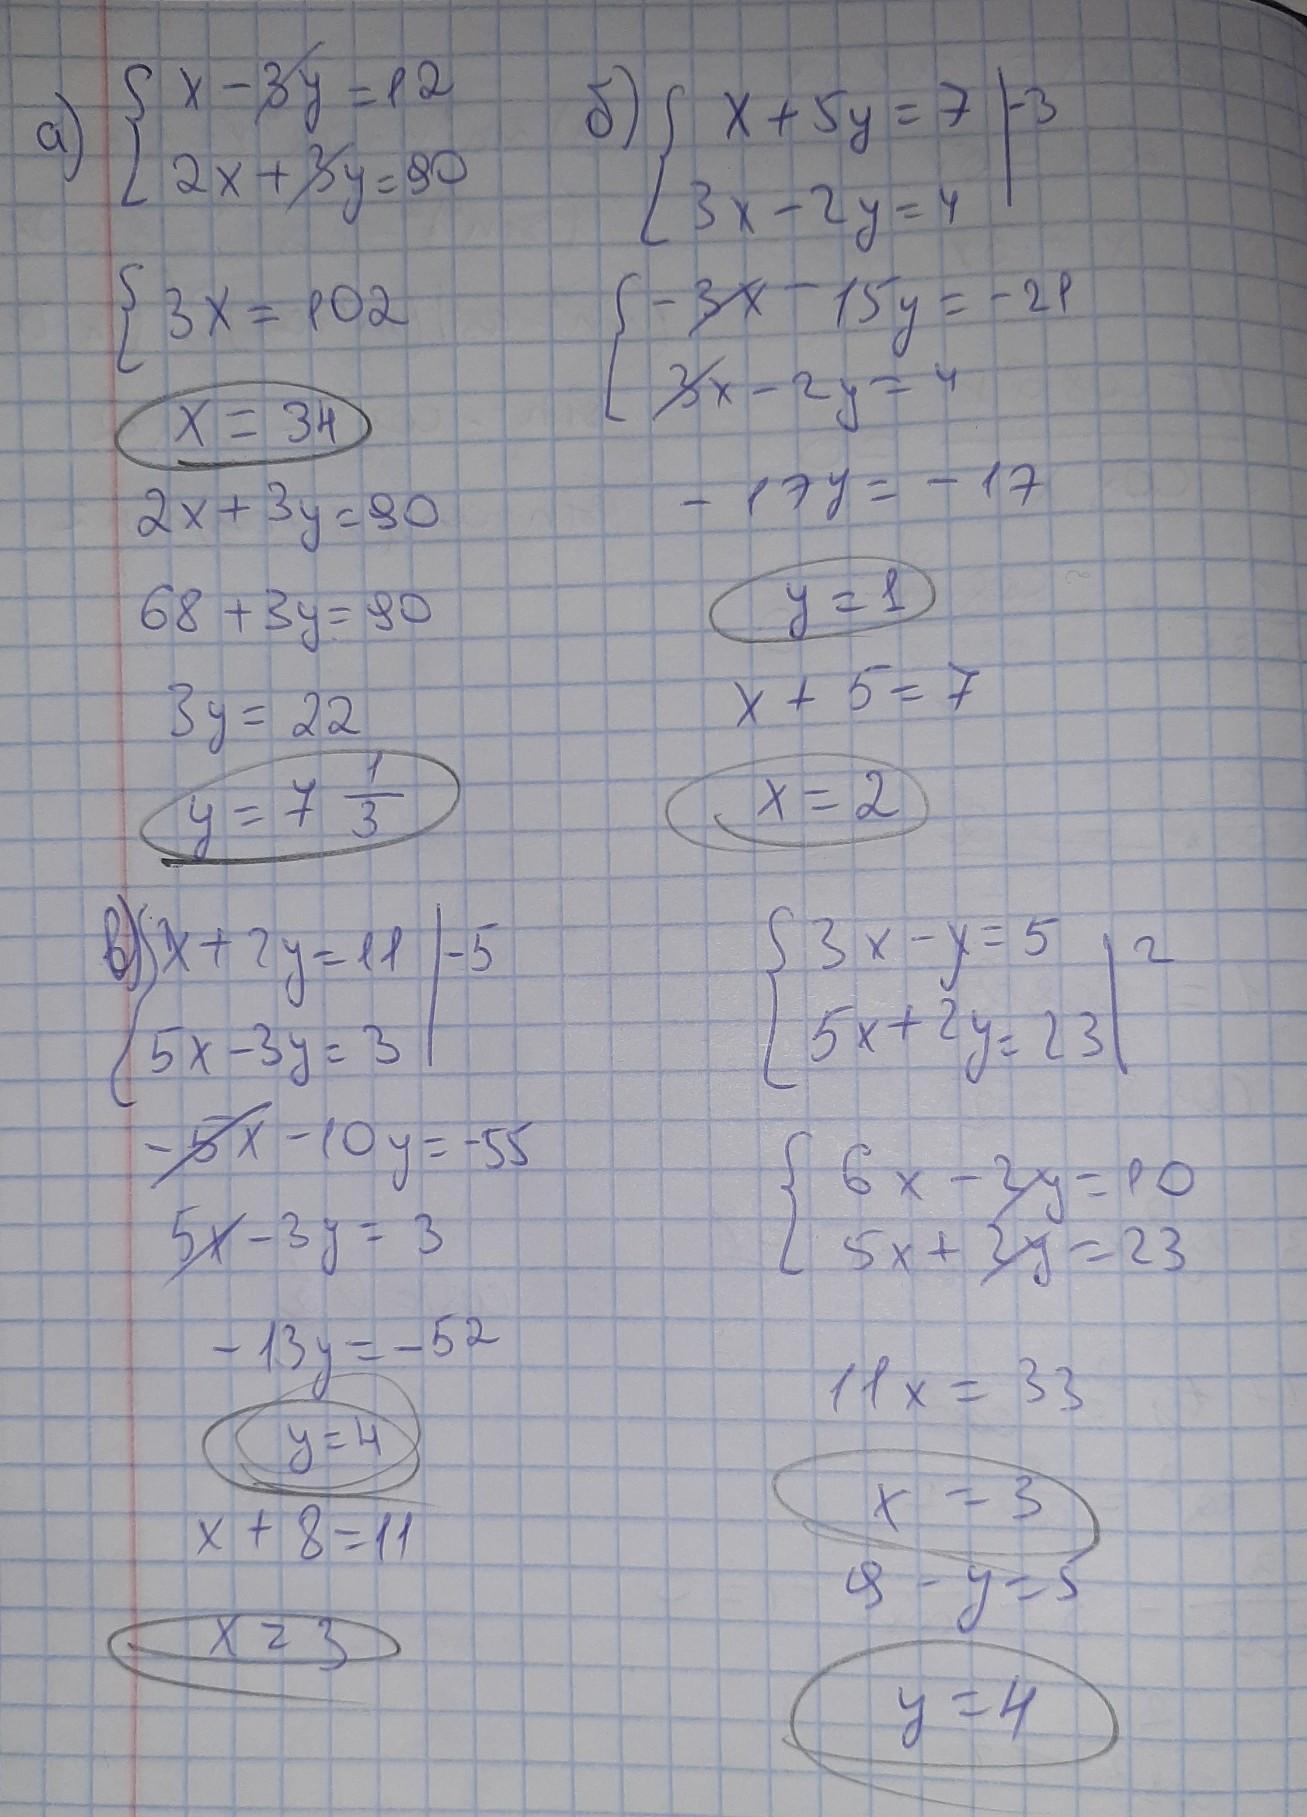 а) { x - 3y = 12
2x + 3y = 90
{ 3x = 102
x = 34
2x + 3y = 90
68 + 3y = 90
3y = 22
y = 7 1/3
б) { x + 5y = 7 | -3
3x - 2y = 4
{ -3x - 15y = -21
3x - 2y = 4
- 17y = - 17
y = 1
x + 5 = 7
x = 2
в) { x + 2y = 11 | -5
5x - 3y = 3
-5x - 10y = -55
5x - 3y = 3
- 13y = - 52
y = 4
x + 8 = 11
x = 3
{ 3x - y = 5 | 2
5x + 2y = 23
{ 6x - 2y = 10
5x + 2y = 23
11x = 33
x = 3
9 - y = 5
y = 4